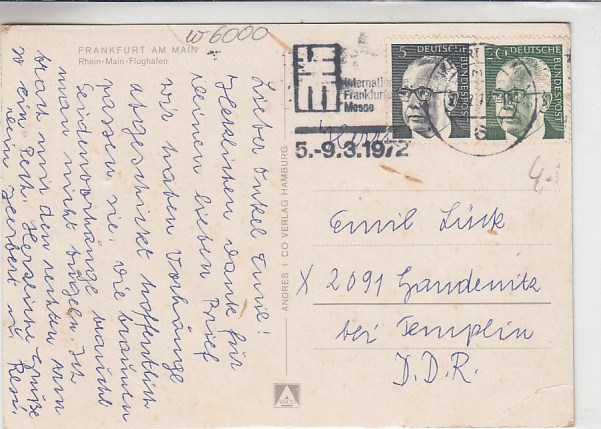 w 6000
FRANKFURT AM MAIN
Rhein-Main-Flughafen
Lieber Onkel Emil!
Herzlichen Dank für
deinen lieben Brief
wir haben Vorhänge
abgeschickt hoffentlich
passen sie. Die braunen
Seidenvorhänge braucht
man nicht bügeln. Ich
brach mir den rechten Arm
Herzliche Grüße
dein Herbert u.
ANDRES + CO VERLAG HAMBURG
ANCO
Internationale
Frankfurter
Messe
5.-9.3.1972
5
DEUTSCHE
BUNDESPOST
DEUTSCHE
BUNDESPOST
Herrn
4,-
Emil Lück
X 2091 Gandenitz
bei Templin
D.D.R.